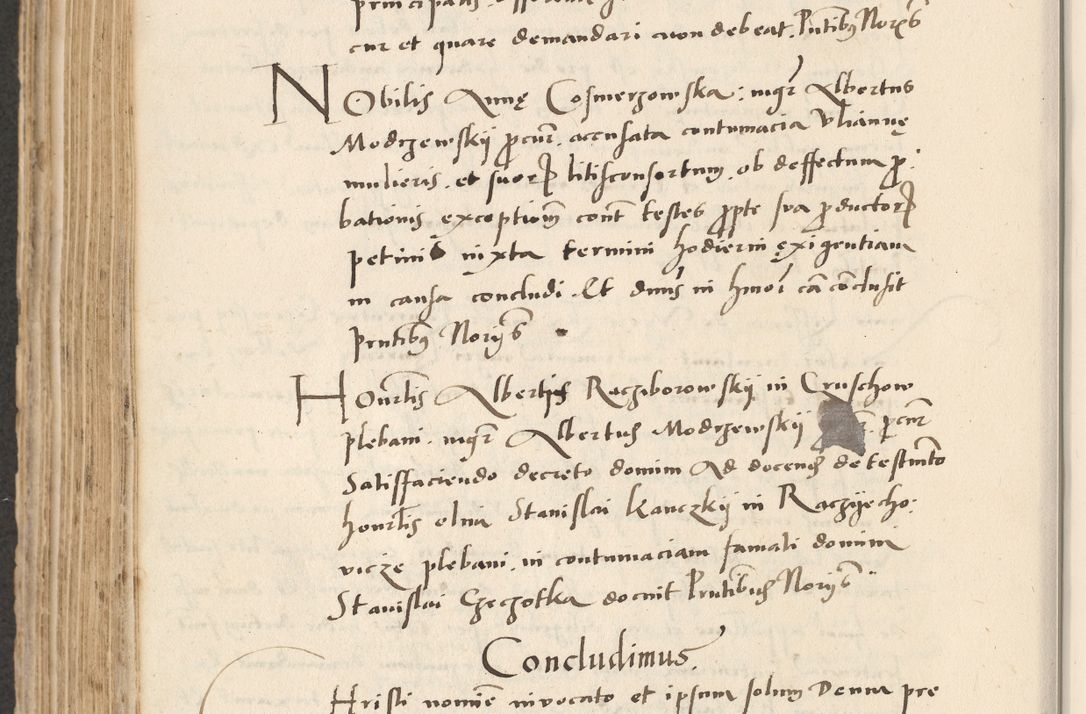 cur et quare demandari non debeat. Pntibus Norys
NObilis Annę Cosmerzowska: mgr Albertus
Modrzewskij procur. accusata contumacia Vliannę
mulieris. et suor litisconsortum, ob deffectum pro:
bationis exceptionum cont testes propte sua productor
petiuit iuxta termini hodierni exigentiam
in causa concludi. Et dnus in hmoi ca conclusit
pntibus Norys
Honrlis Albertis Raczborowskij in Cruschow
plebani. mgr Albertus Modrzewskij procur
Satisffaciendo decreto domini Ad docend de testmto
honrlis olim Stanislai Kanczkij in Raczijecho:
vicze plebani. in contumaciam famati domini
Stanislai Czeczotka docuit Pntibus Norys
Concludimus.
Hristi nomine invocato et ipsum solum Deum pre